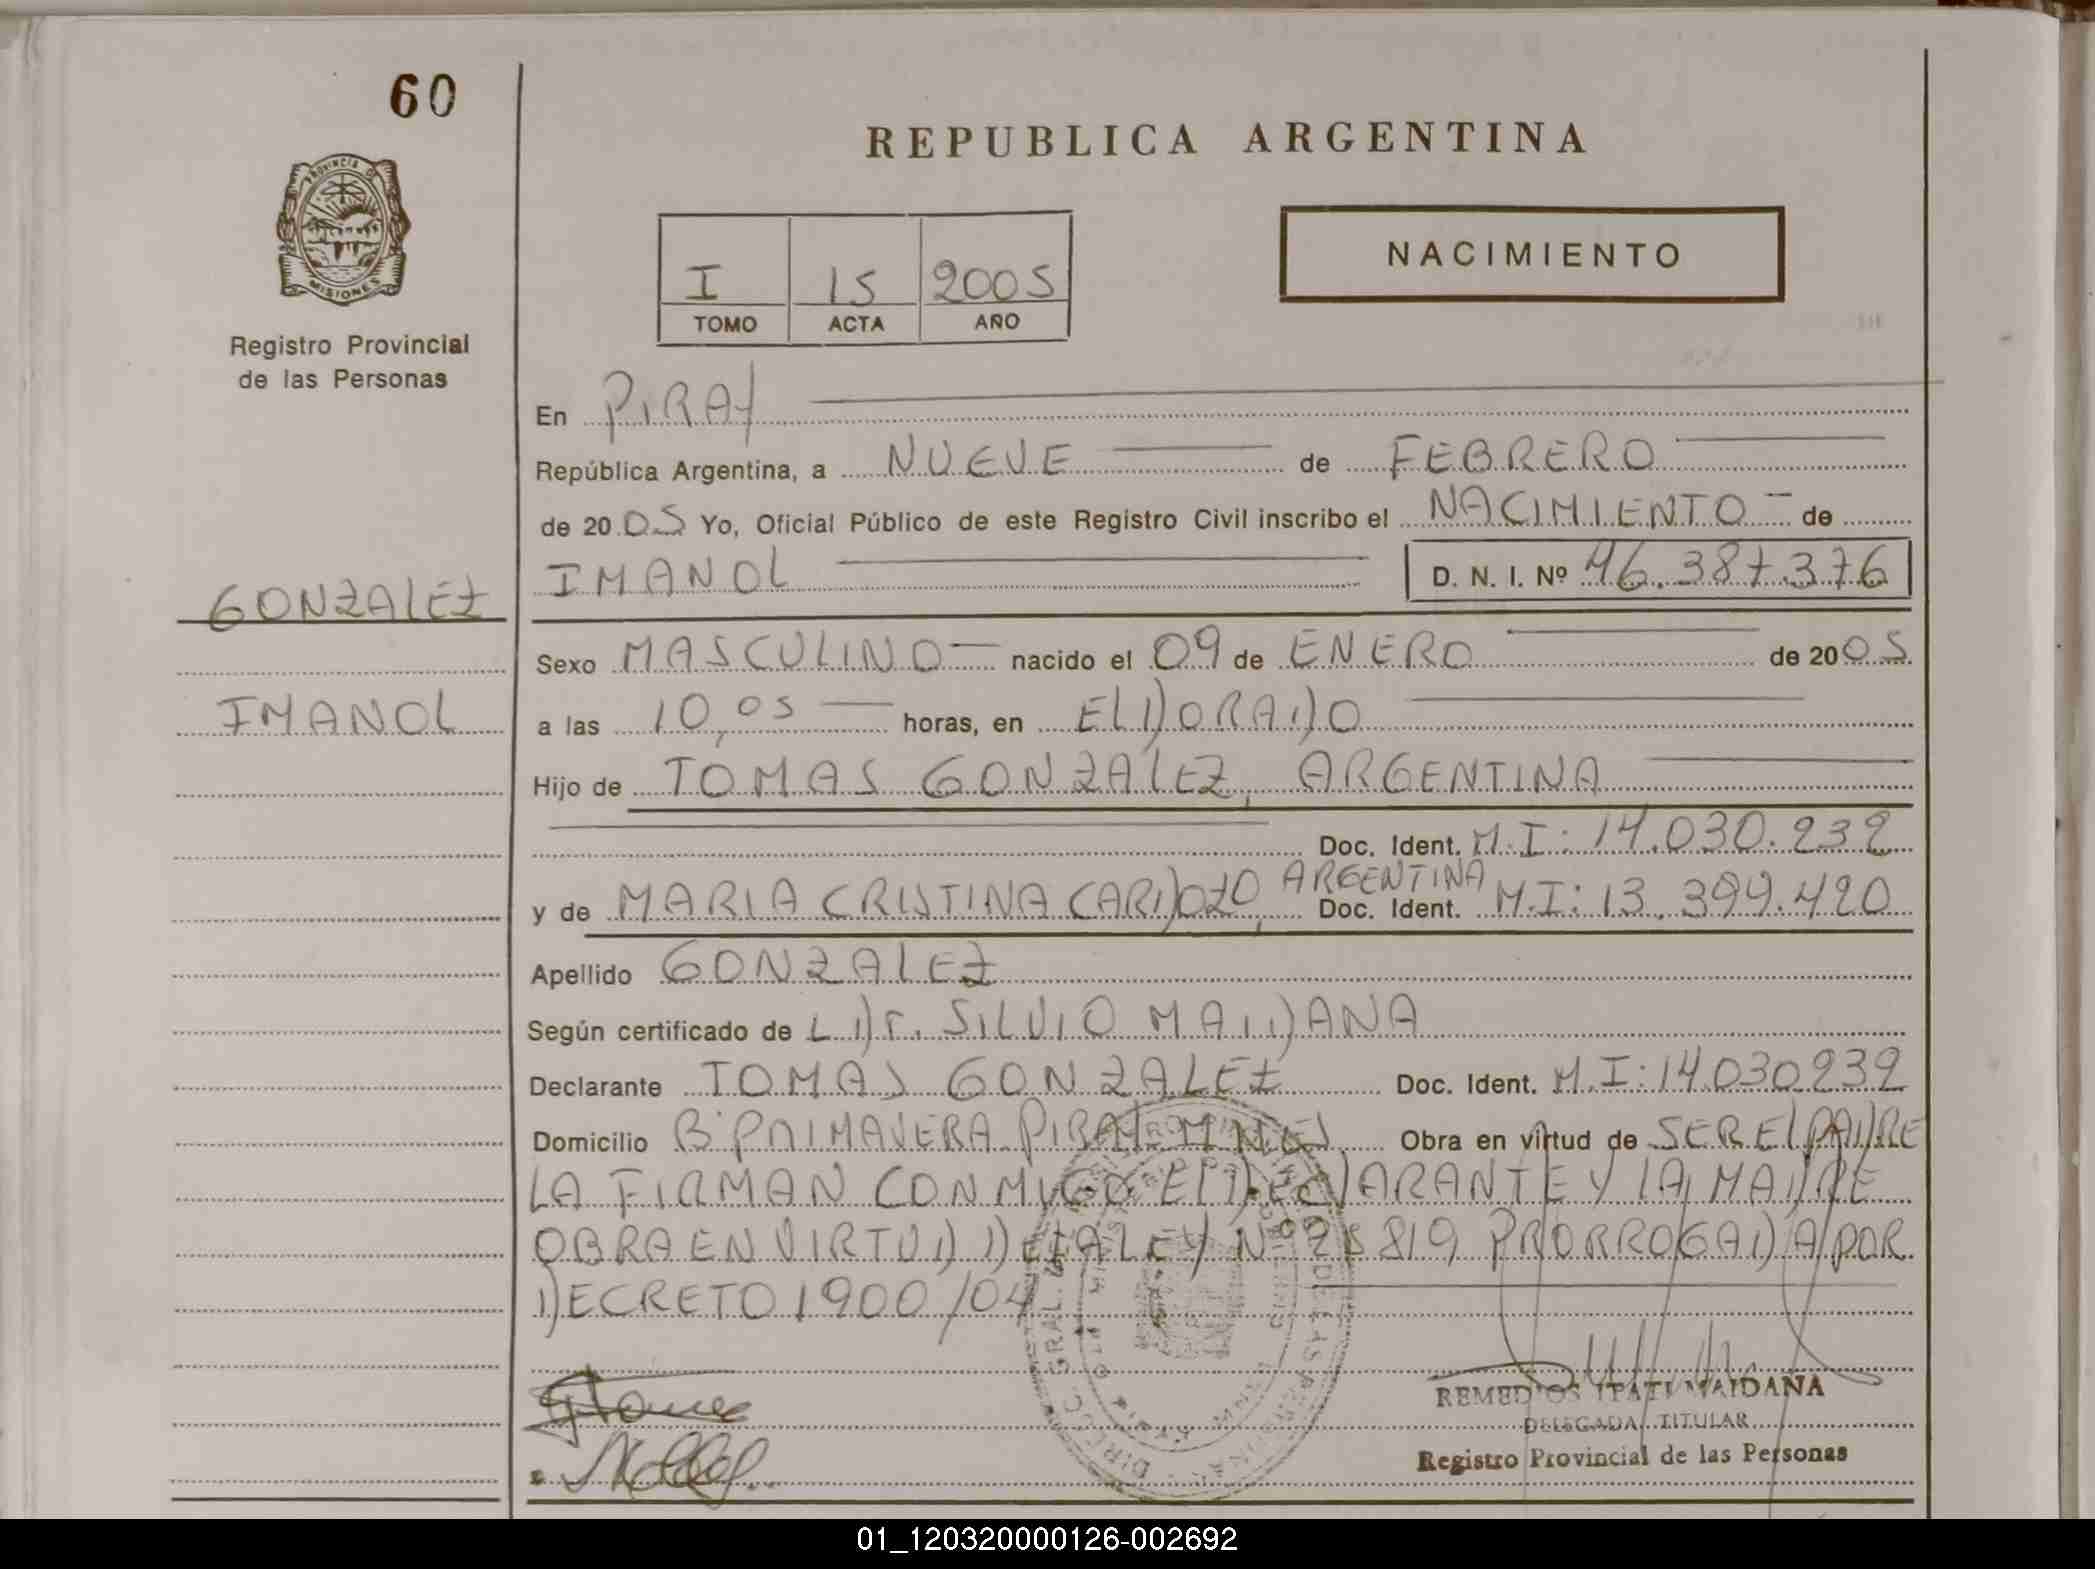 60
REPUBLICA ARGENTINA
PROVINCIA D
MISIONES
NACIMIENTO
I 15 2005
TOMO ACTA AÑO
Registro Provincial
de las Personas
En PIRAY
República Argentina, a NUEVE de FEBRERO
de 2005 Yo, Oficial Público de este Registro Civil inscribo el NACIMIENTO de
IMANOL D. N. I. Nº 46.387.376
GONZALEZ
Sexo MASCULINO nacido el 09 de ENERO de 2005
IMANOL
a las 10,05 horas, en ELDORADO
Hijo de TOMAS GONZALEZ, ARGENTINA
Doc. Ident. M.I: 14.030.232
y de MARIA CRISTINA CARDOZO, ARGENTINA Doc. Ident. M.I: 13.399.420
Apellido GONZALEZ
Según certificado de L DR. SILVIO MAIDANA
Declarante TOMAS GONZALEZ Doc. Ident. M.I: 14030232
Domicilio Bº PRIMAVERA PIRAY MNES Obra en virtud de SER EL PADRE
LA FIRMAN CONMIGO EL DECLARANTE Y LA MADRE
OBRA EN VIRTUD DE LA LEY Nº 25819 PRORROGADA POR
DECRETO 1900/04
REMEDIOS ITATI MAIDANA
DELEGADA TITULAR
Registro Provincial de las Personas
01_120320000126-002692